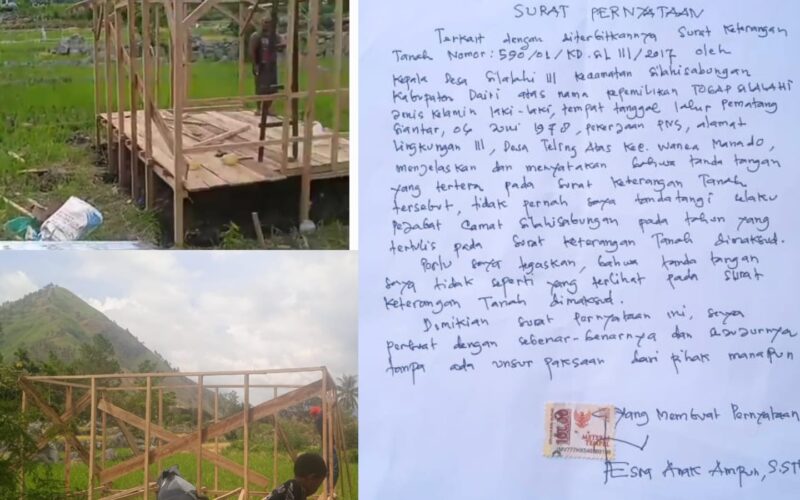 SURAT PERNYATAAN
Terkait dengan diterbitkannya Surat Keterangan
Tanah Nomor: 590/01/KD.SL III/2017 oleh
Kepala Desa Silalahi III Kecamatan Silahisabungan
Kabupaten Dairi atas nama kepemilikan TOGAP SILALAHI
Jenis kelamin laki-laki, tempat tanggal lahir Pematang
Siantar, 04 Juni 1978, pekerjaan PNS, alamat
Lingkungan III, Desa Teling Atas Kec. Wanea Manado,
menjelaskan dan menyatakan bahwa tanda tangan
yang tertera pada surat Keterangan Tanah
tersebut, tidak pernah saya tandatangi selaku
Pejabat Camat Silahisabungan pada tahun yang
tertulis pada Surat Keterangan Tanah dimaksud.
Perlu saya tegaskan, bahwa tanda tangan
saya tidak seperti yang terlihat pada surat
Keterangan Tanah dimaksud.
Dimikian surat pernyataan ini, saya
perbuat dengan sebenar-benarnya dan sejujurnya
tanpa ada unsur paksaan dari pihak manapun
Yang Membuat Pernyataan
METERAI
TEMPEL
Esra Anak Ampun, S.STP